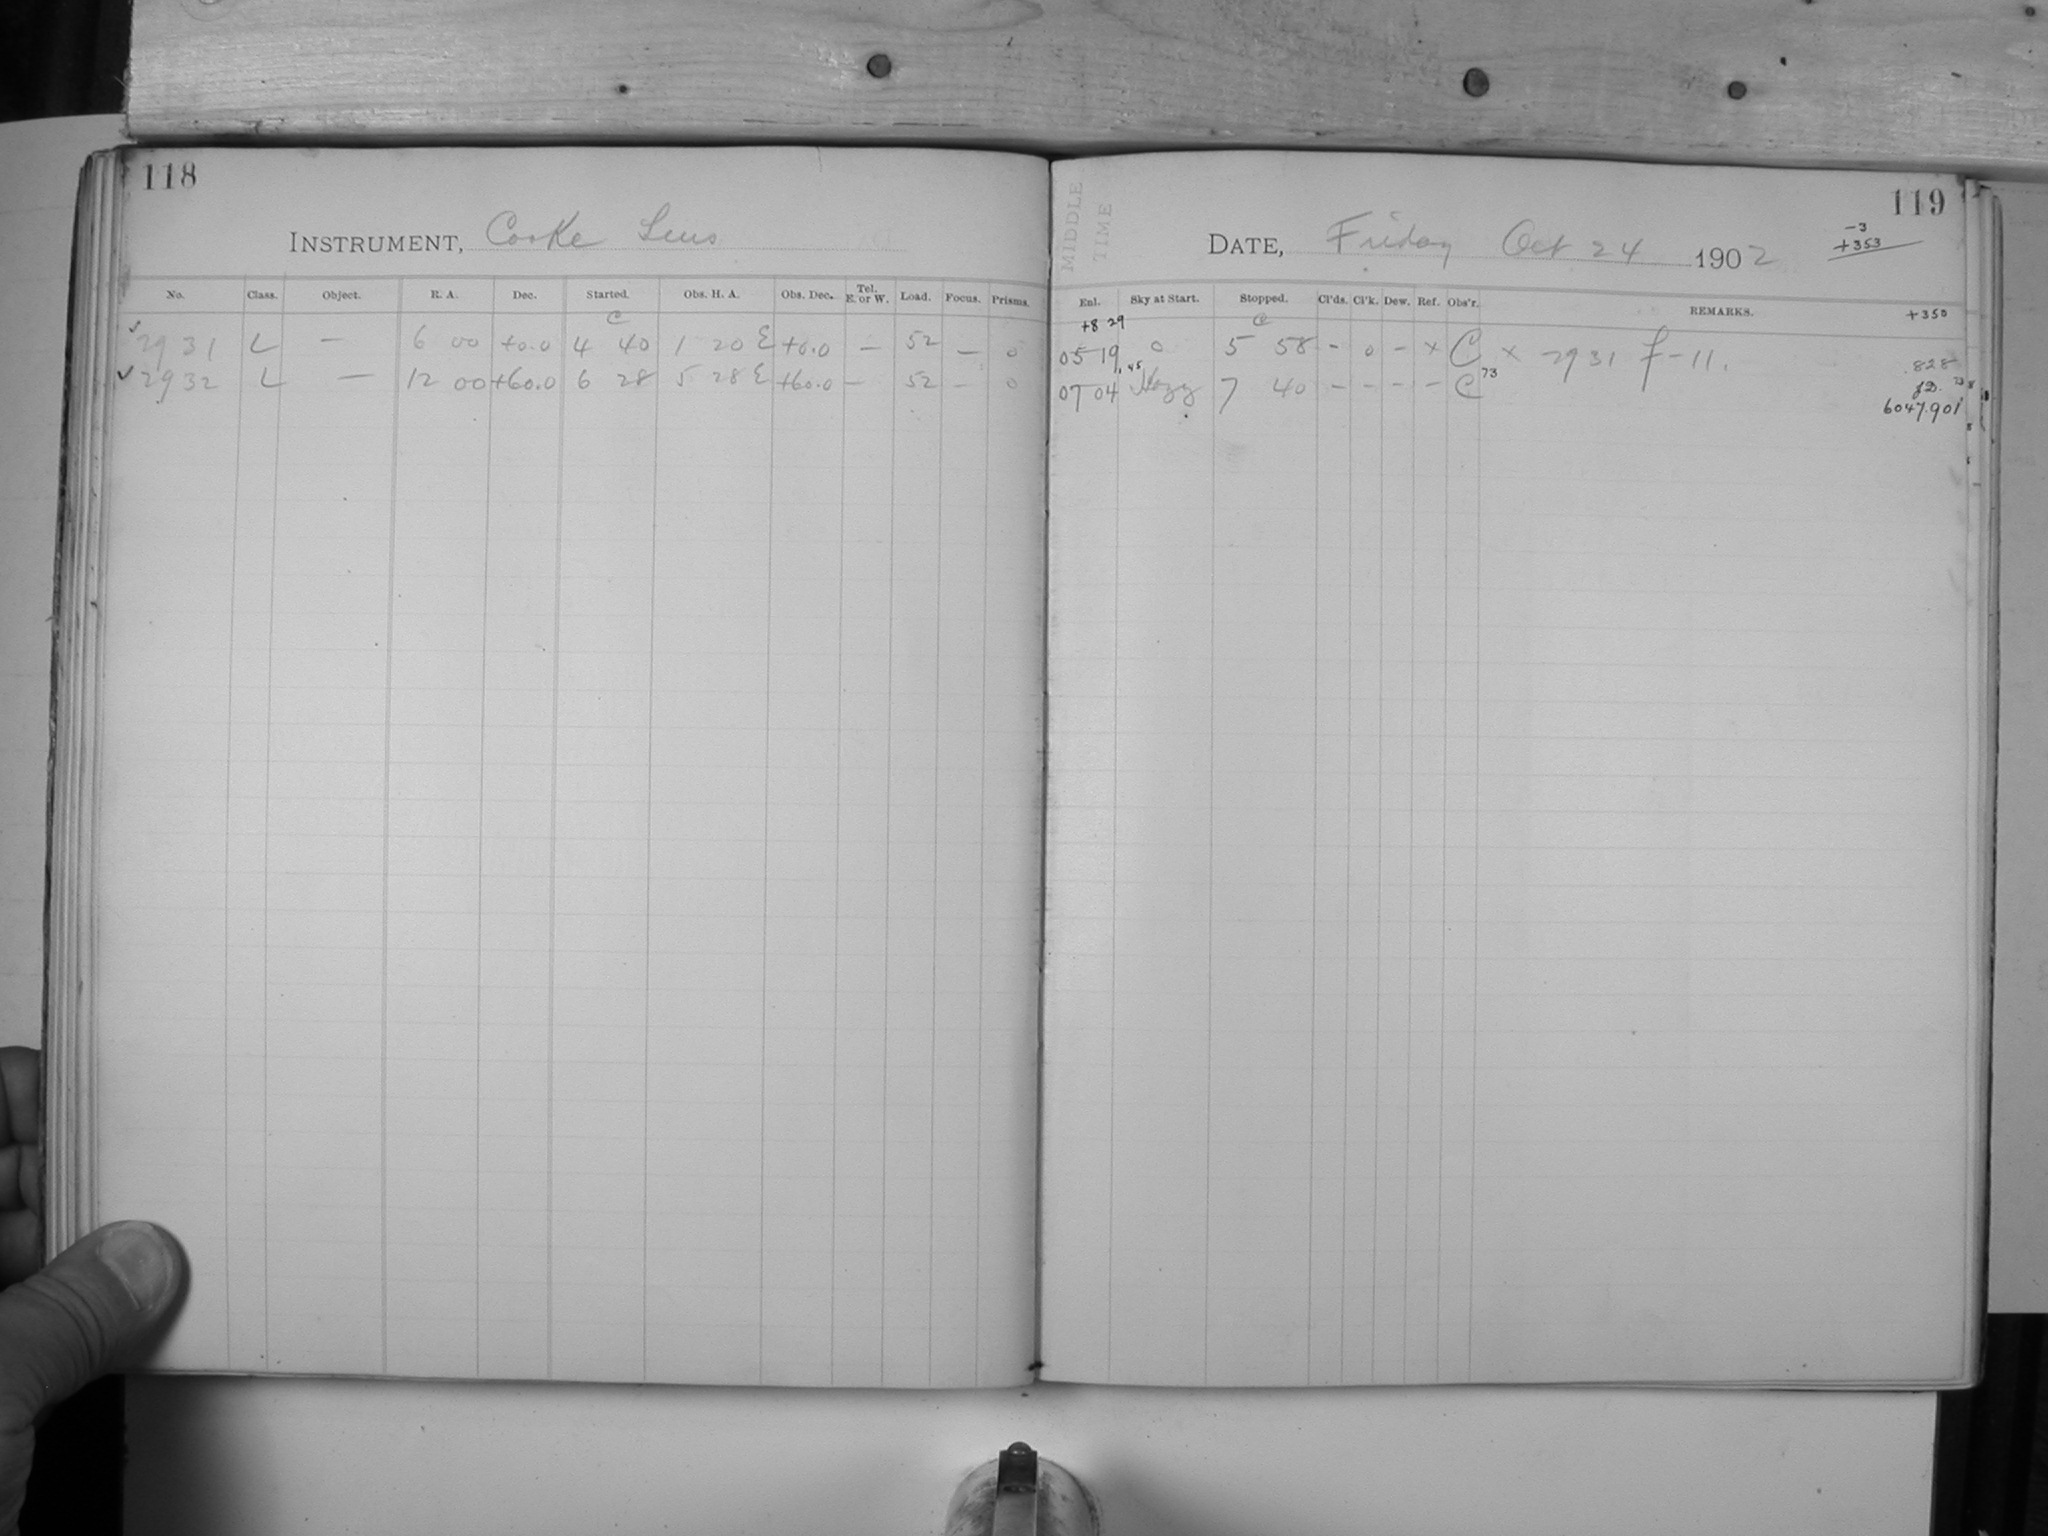 118
INSTRUMENT, Cooke Lens
No. Class. Object. R. A. Dec. Started. Obs. H. A. Obs. Dec. Tel. E. or W. Load. Focus. Prisms.
C
✓ 2931 L — 6 00 +0.0 4 40 1 20 E +0.0 — 52 — 0
✓ 2932 L — 12 00 +60.0 6 28 5 28 E +60.0 — 52 — 0
119
MIDDLE
TIME
DATE, Friday Oct 24 1902
-3
+353
Enl. Sky at Start. Stopped. Cl'ds. Cl'k. Dew. Ref. Obs'r. REMARKS. +350
+8 29 C
05 19 0 5 58 - 0 - x C x 2931 f-11. .828
07 04 Hazy 7 40 - - - - C 73 J.D.
6047.901